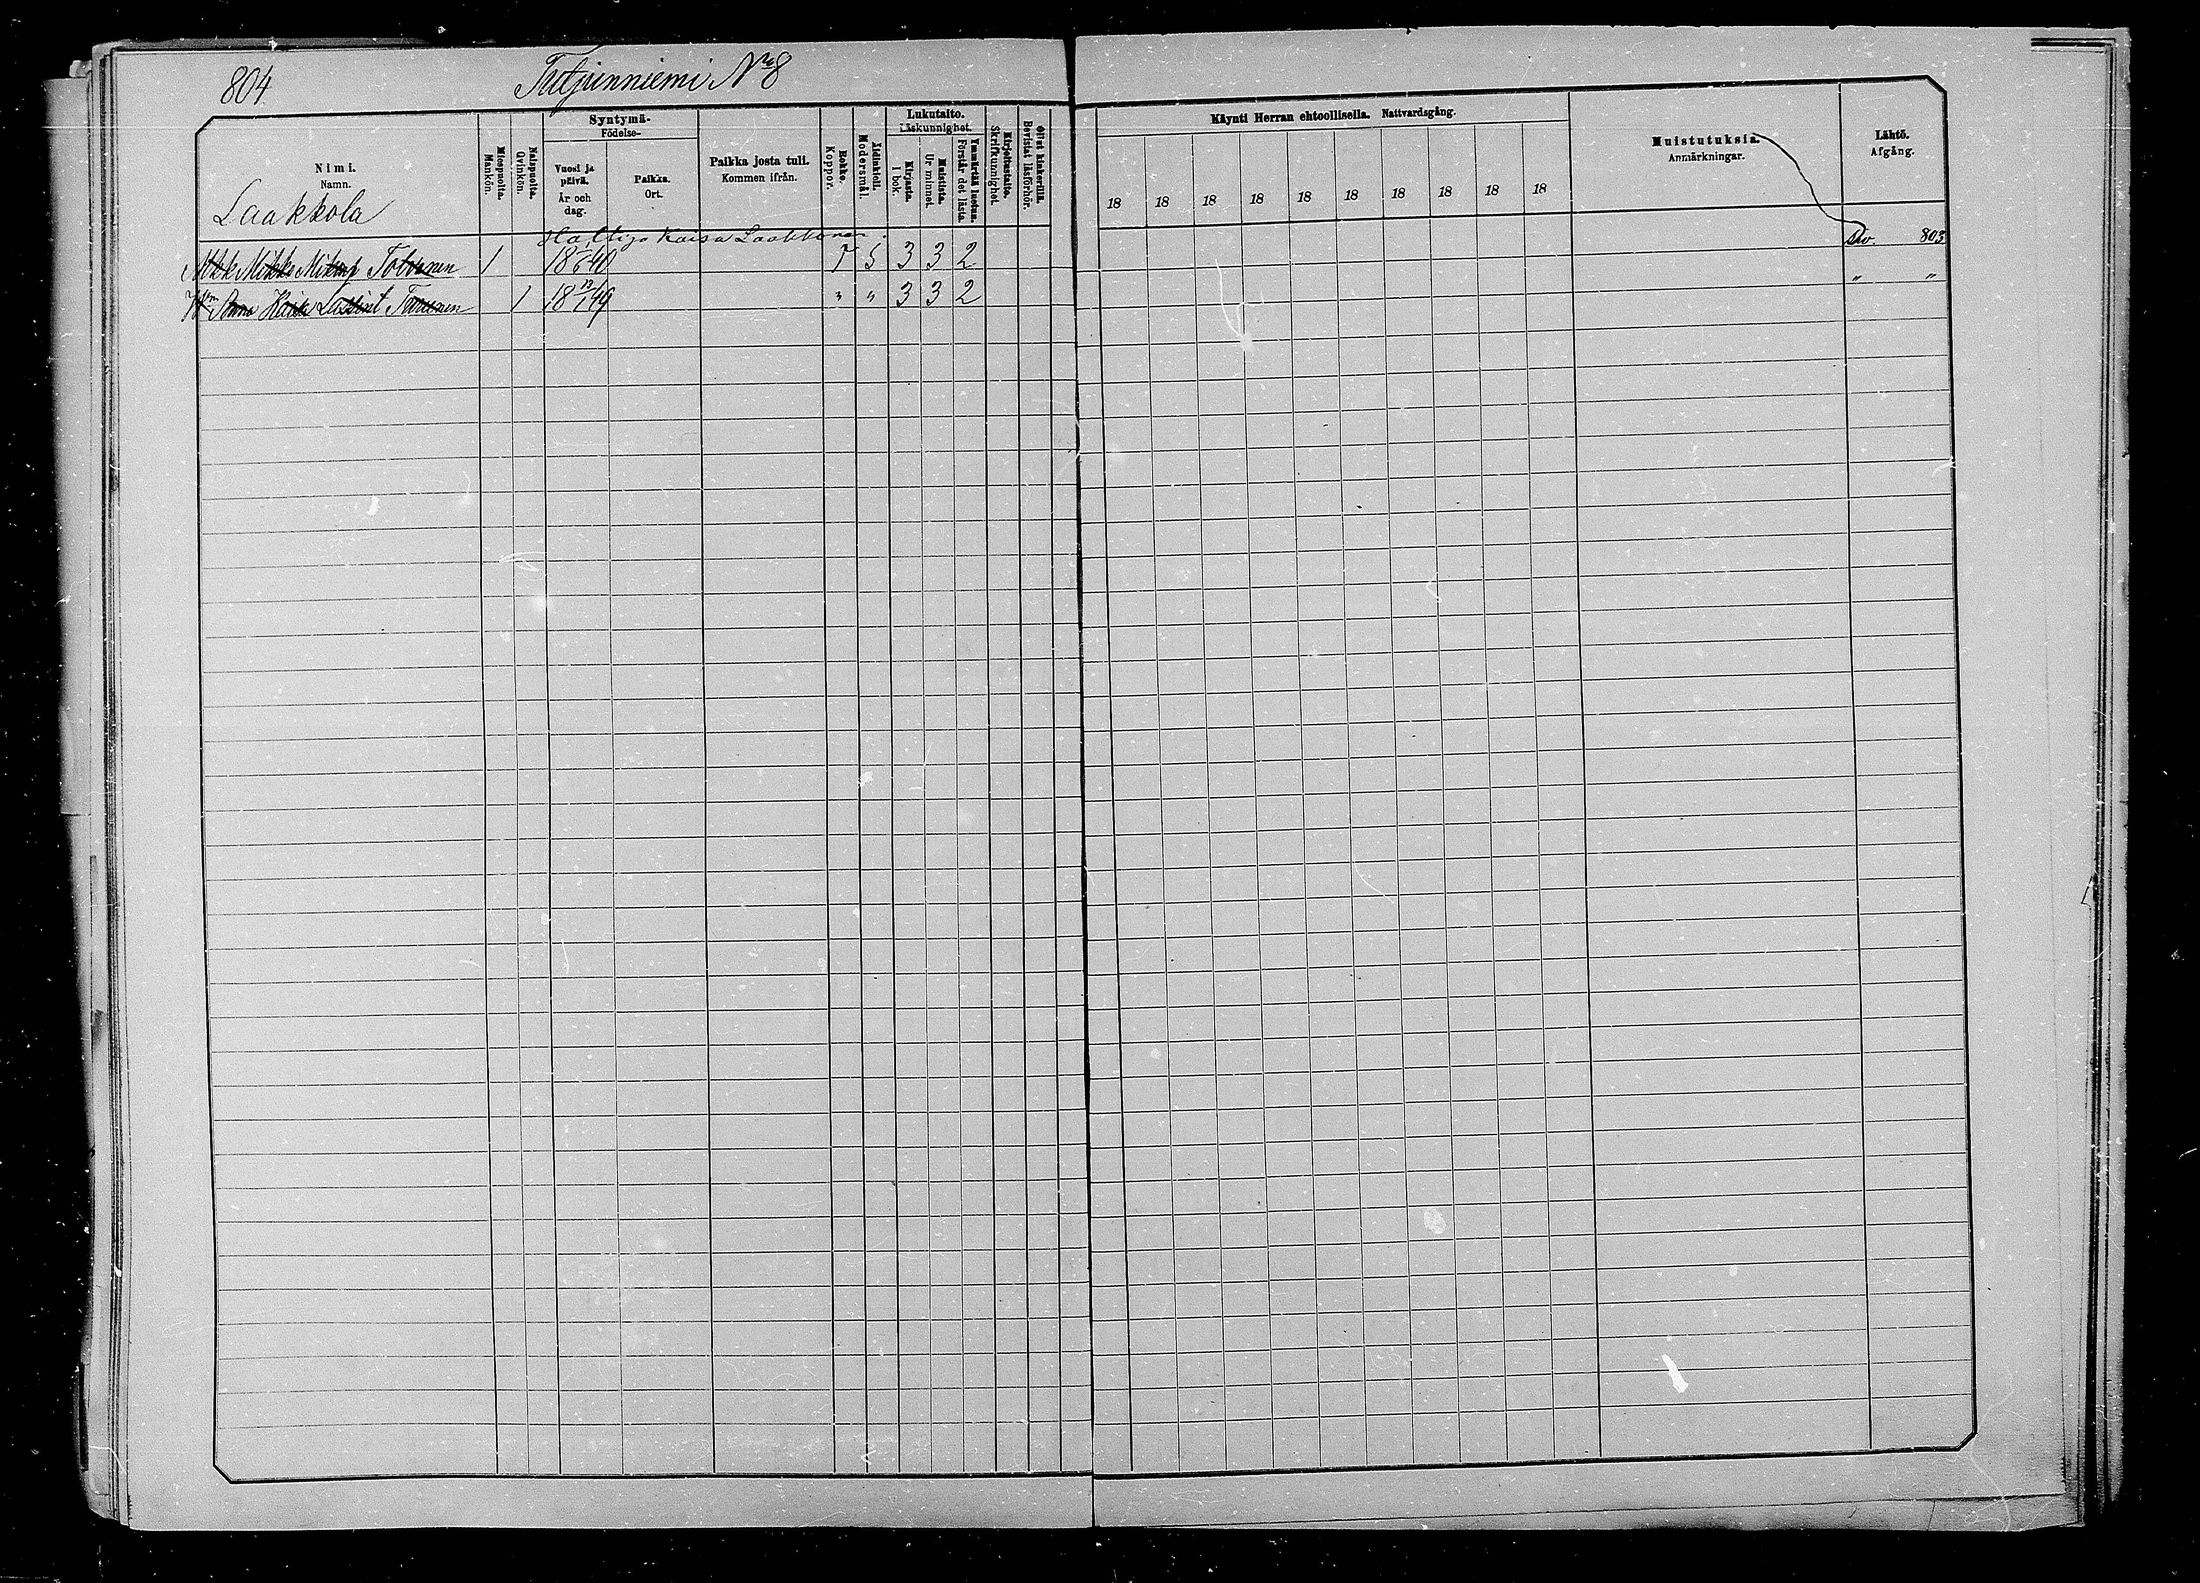 804. Tutjunniemi No 8
Nimi.
Namn.
Laakkola
Miespuolta.
Mankön.
Naispuolta.
Qvinkön.
Syntymä-
Födelse-
Vuosi ja
päivä.
År och
dag.
Paikka.
Ort.
Paikka josta tuli.
Kommen ifrån.
Rokko.
Koppor.
Äidinkieli.
Modersmål.
Lukutaito.
Läskunnighet.
Kirjasta.
I bok.
Muistista.
Ur minnet.
Ymmärtää luetun.
Förstår det lästa.
Kirjoitustaito.
Skrifkunnighet
Ollut kinkerillä.
Bevistat läsförhör.
Käynti Herran ehtoollisella. Nattvardsgång.
18 18 18 18 18 18 18 18 18 18
Muistutuksia.
Anmärkningar.
Lähtö.
Afgång.
Kaisa Laakkonen.
Mikko Toivonen 1 18 40 r 5 3 3 2 803
Anna 1 18 49 " " 3 3 2 " "